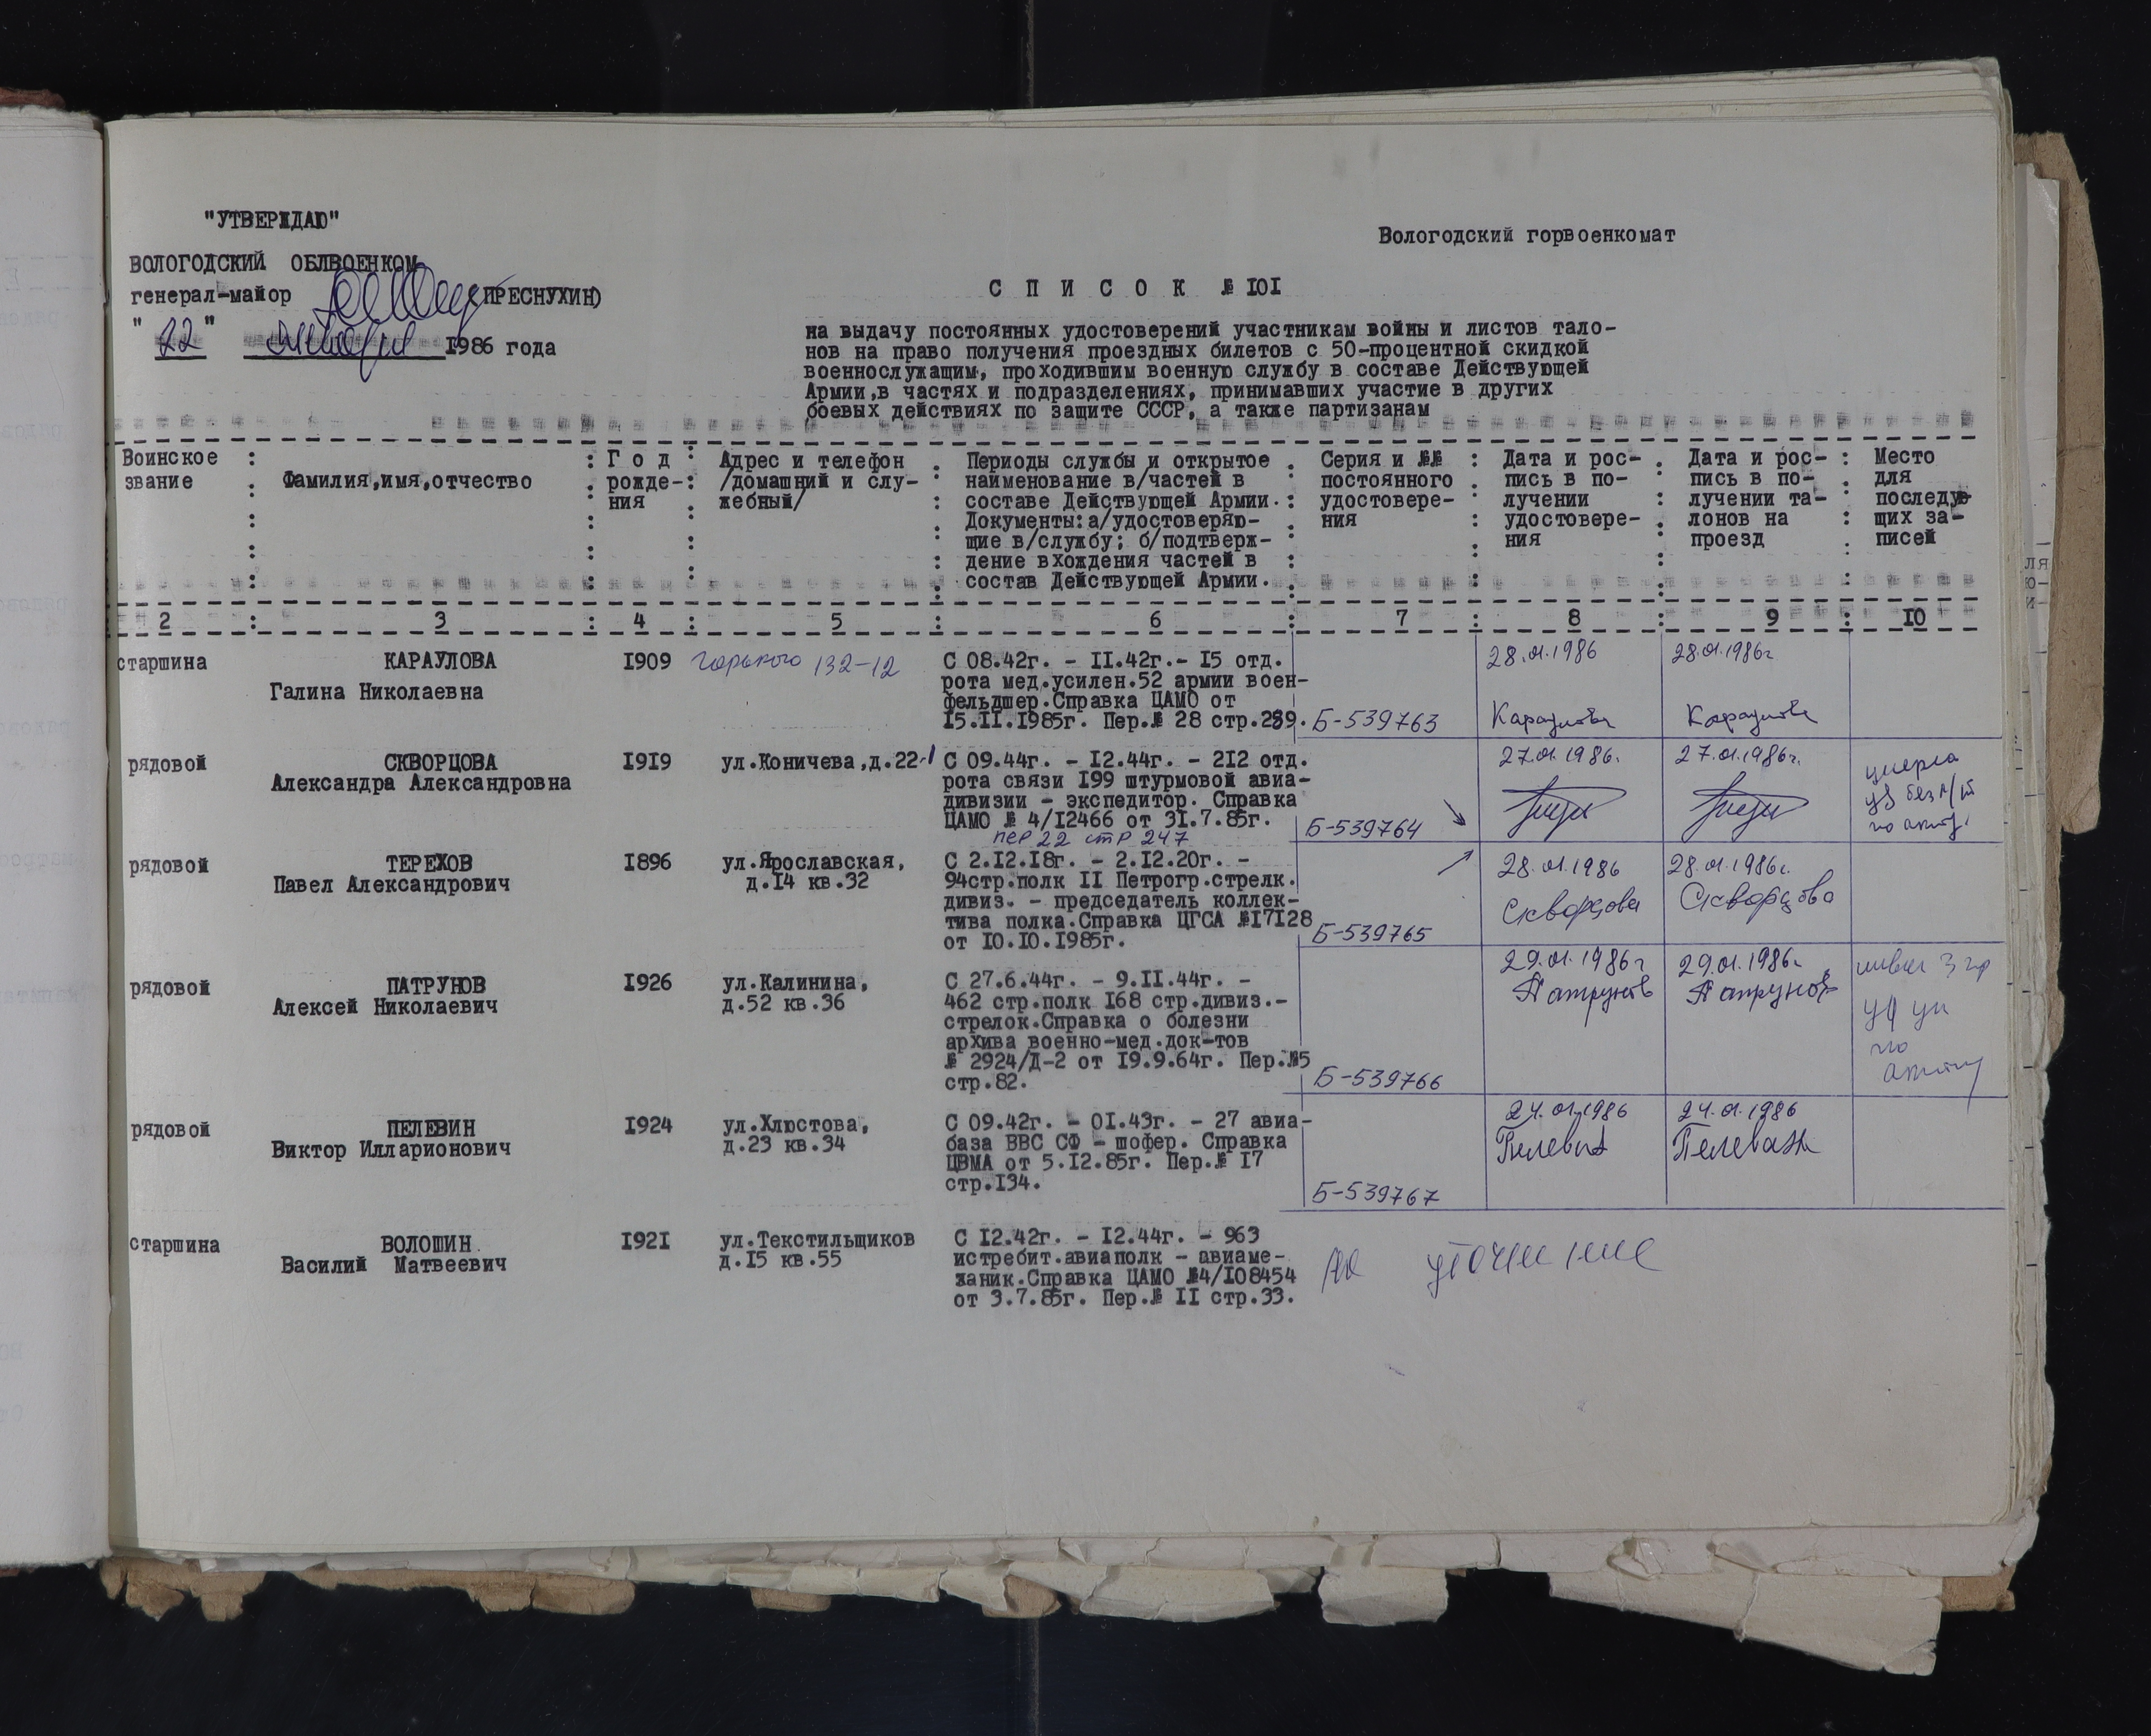 "УТВЕРЖДАЮ"
ВОЛОГОДСКИЙ ОБЛВОЕНКОМ
генерал-майор (ПРЕСНУХИН)
"22" января 1986 года
Вологодский горвоенкомат
С П И С О К № 101
на выдачу постоянных удостоверений участникам войны и листов тало-
нов на право получения проездных билетов с 50-процентной скидкой
военнослужащим, проходившим военную службу в составе Действующей
Армии,в частях и подразделениях, принимавших участие в других
боевых действиях по защите СССР, а также партизанам
Воинское
звание
Фамилия,имя,отчество
Г о д
рожде-
ния
Адрес и телефон
/домашний и слу-
жебный/
Периоды службы и открытое
наименование в/частей в
составе Действующей Армии.
Документы:а/удостоверяю-
щие в/службу; б/подтверж-
дение вхождения частей в
состав Действующей Армии.
Серия и №№
постоянного
удостовере-
ния
Дата и рос-
пись в по-
лучении
удостовере-
ния
Дата и рос-
пись в по-
лучении та-
лонов на
проезд
Место
для
последую-
щих за-
писей
2 3 4 5 6 7 8 9 10
старшина
КАРАУЛОВА
Галина Николаевна
1909
Горького 132-12
С 08.42г. - 11.42г.- 15 отд.
рота мед.усилен.52 армии воен-
фельдшер.Справка ЦАМО от
15.11.1985г. Пер.№ 28 стр.239.
Б-539763
28.01.1986
Караулова
28.01.1986г
Караулова
рядовой
СКВОРЦОВА
Александра Александровна
1919
ул.Коничева,д.22-1
С 09.44г. - 12.44г. - 212 отд.
рота связи 199 штурмовой авиа-
дивизии - экспедитор. Справка
ЦАМО № 4/12466 от 31.7.85г.
пер 22 стр 247
Б-539764
27.01.1986.
27.01.1986г.
рядовой
ТЕРЕХОВ
Павел Александрович
1896
ул.Ярославская,
д.14 кв.32
С 2.12.18г. - 2.12.20г. -
94стр.полк II Петрогр.стрелк.
дивиз. - председатель коллек-
тива полка.Справка ЦГСА №17128
от 10.10.1985г.
Б-539765
28.01.1986
Скворцова
28.01.1986г.
Скворцова
рядовой
ПАТРУНОВ
Алексей Николаевич
1926
ул.Калинина,
д.52 кв.36
С 27.6.44г. - 9.11.44г. -
462 стр.полк 168 стр.дивиз.-
стрелок.Справка о болезни
архива военно-мед.док-тов
№ 2924/Д-2 от 19.9.64г. Пер.№5
стр.82.
Б-539766
29.01.1986г
Патрунов
29.01.1986г
Патрунов
рядовой
ПЕЛЕВИН
Виктор Илларионович
1924
ул.Хлюстова,
д.23 кв.34
С 09.42г. - 01.43г. - 27 авиа-
база ВВС СФ - шофер. Справка
ЦВМА от 5.12.85г. Пер.№ 17
стр.134.
Б-539767
24.01.1986
Пелевин
24.01.1986
Пелевин
старшина
ВОЛОШИН
Василий Матвеевич
1921
ул.Текстильщиков
д.15 кв.55
С 12.42г. - 12.44г. - 963
истребит.авиаполк - авиаме-
ханик.Справка ЦАМО №4/108454
от 3.7.85г. Пер.№ 11 стр.33.
на уточнение